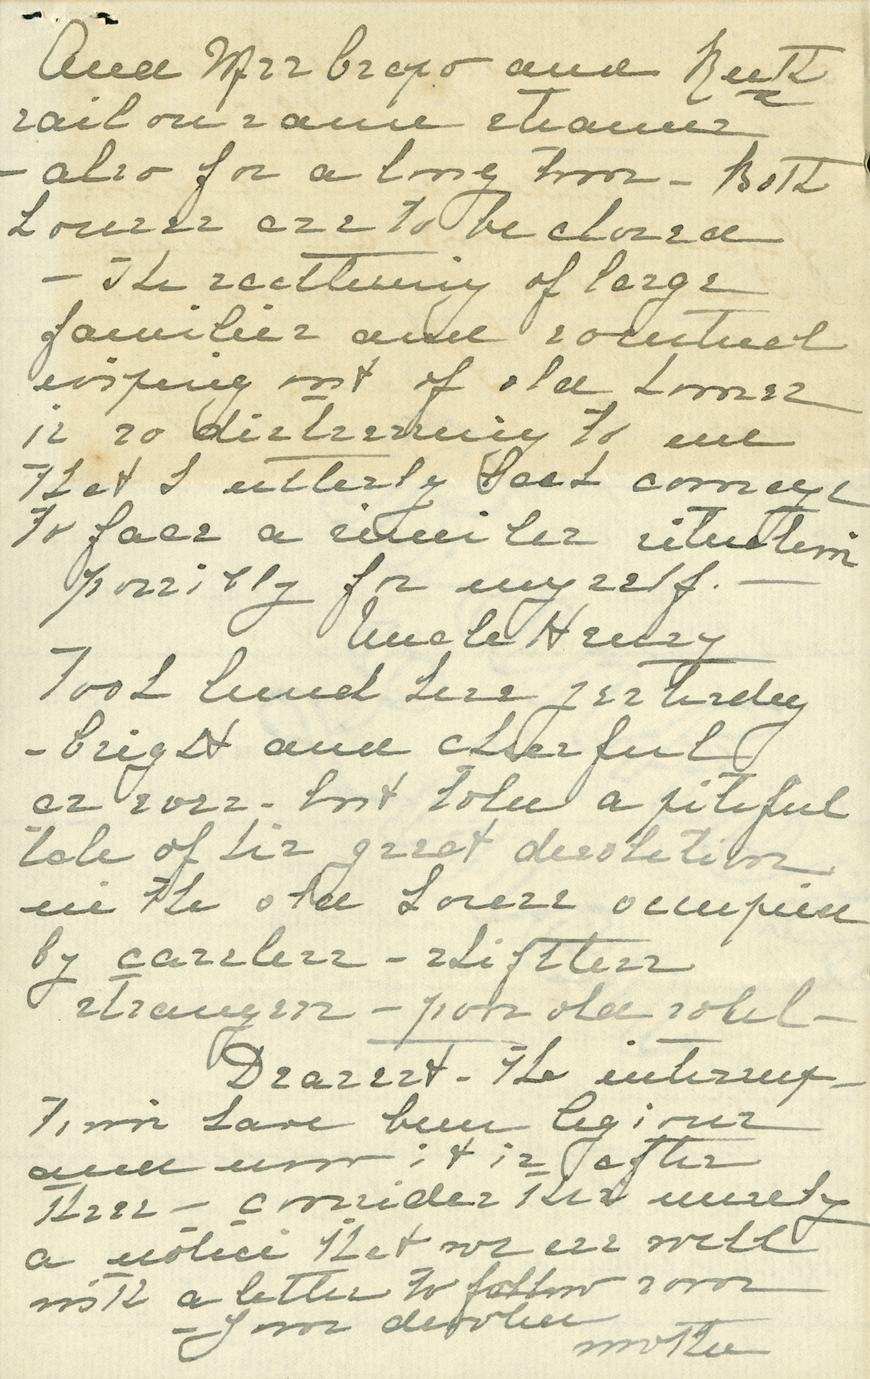 And Mrs Crapo and Ruth
sail on same steamer
- also for a long time - Both
houses are to be closed
- The scattering of large
families and eventual
wiping out of old homes
is so distressing to me
that I utterly lack courage
to face a similar situation
possibly for myself. —
Uncle Henry
Took lunch here yesterday
- bright and cheerful
as ever - but told a pitiful
tale of his great desolation
in the old house occupied
by careless - shiftless
strangers - poor old soul -
Dearest - The interrup-
tions have been legions
and now it is after
three - consider this merely
a notice that we are well
with a letter to follow soon
- Your devoted
mother